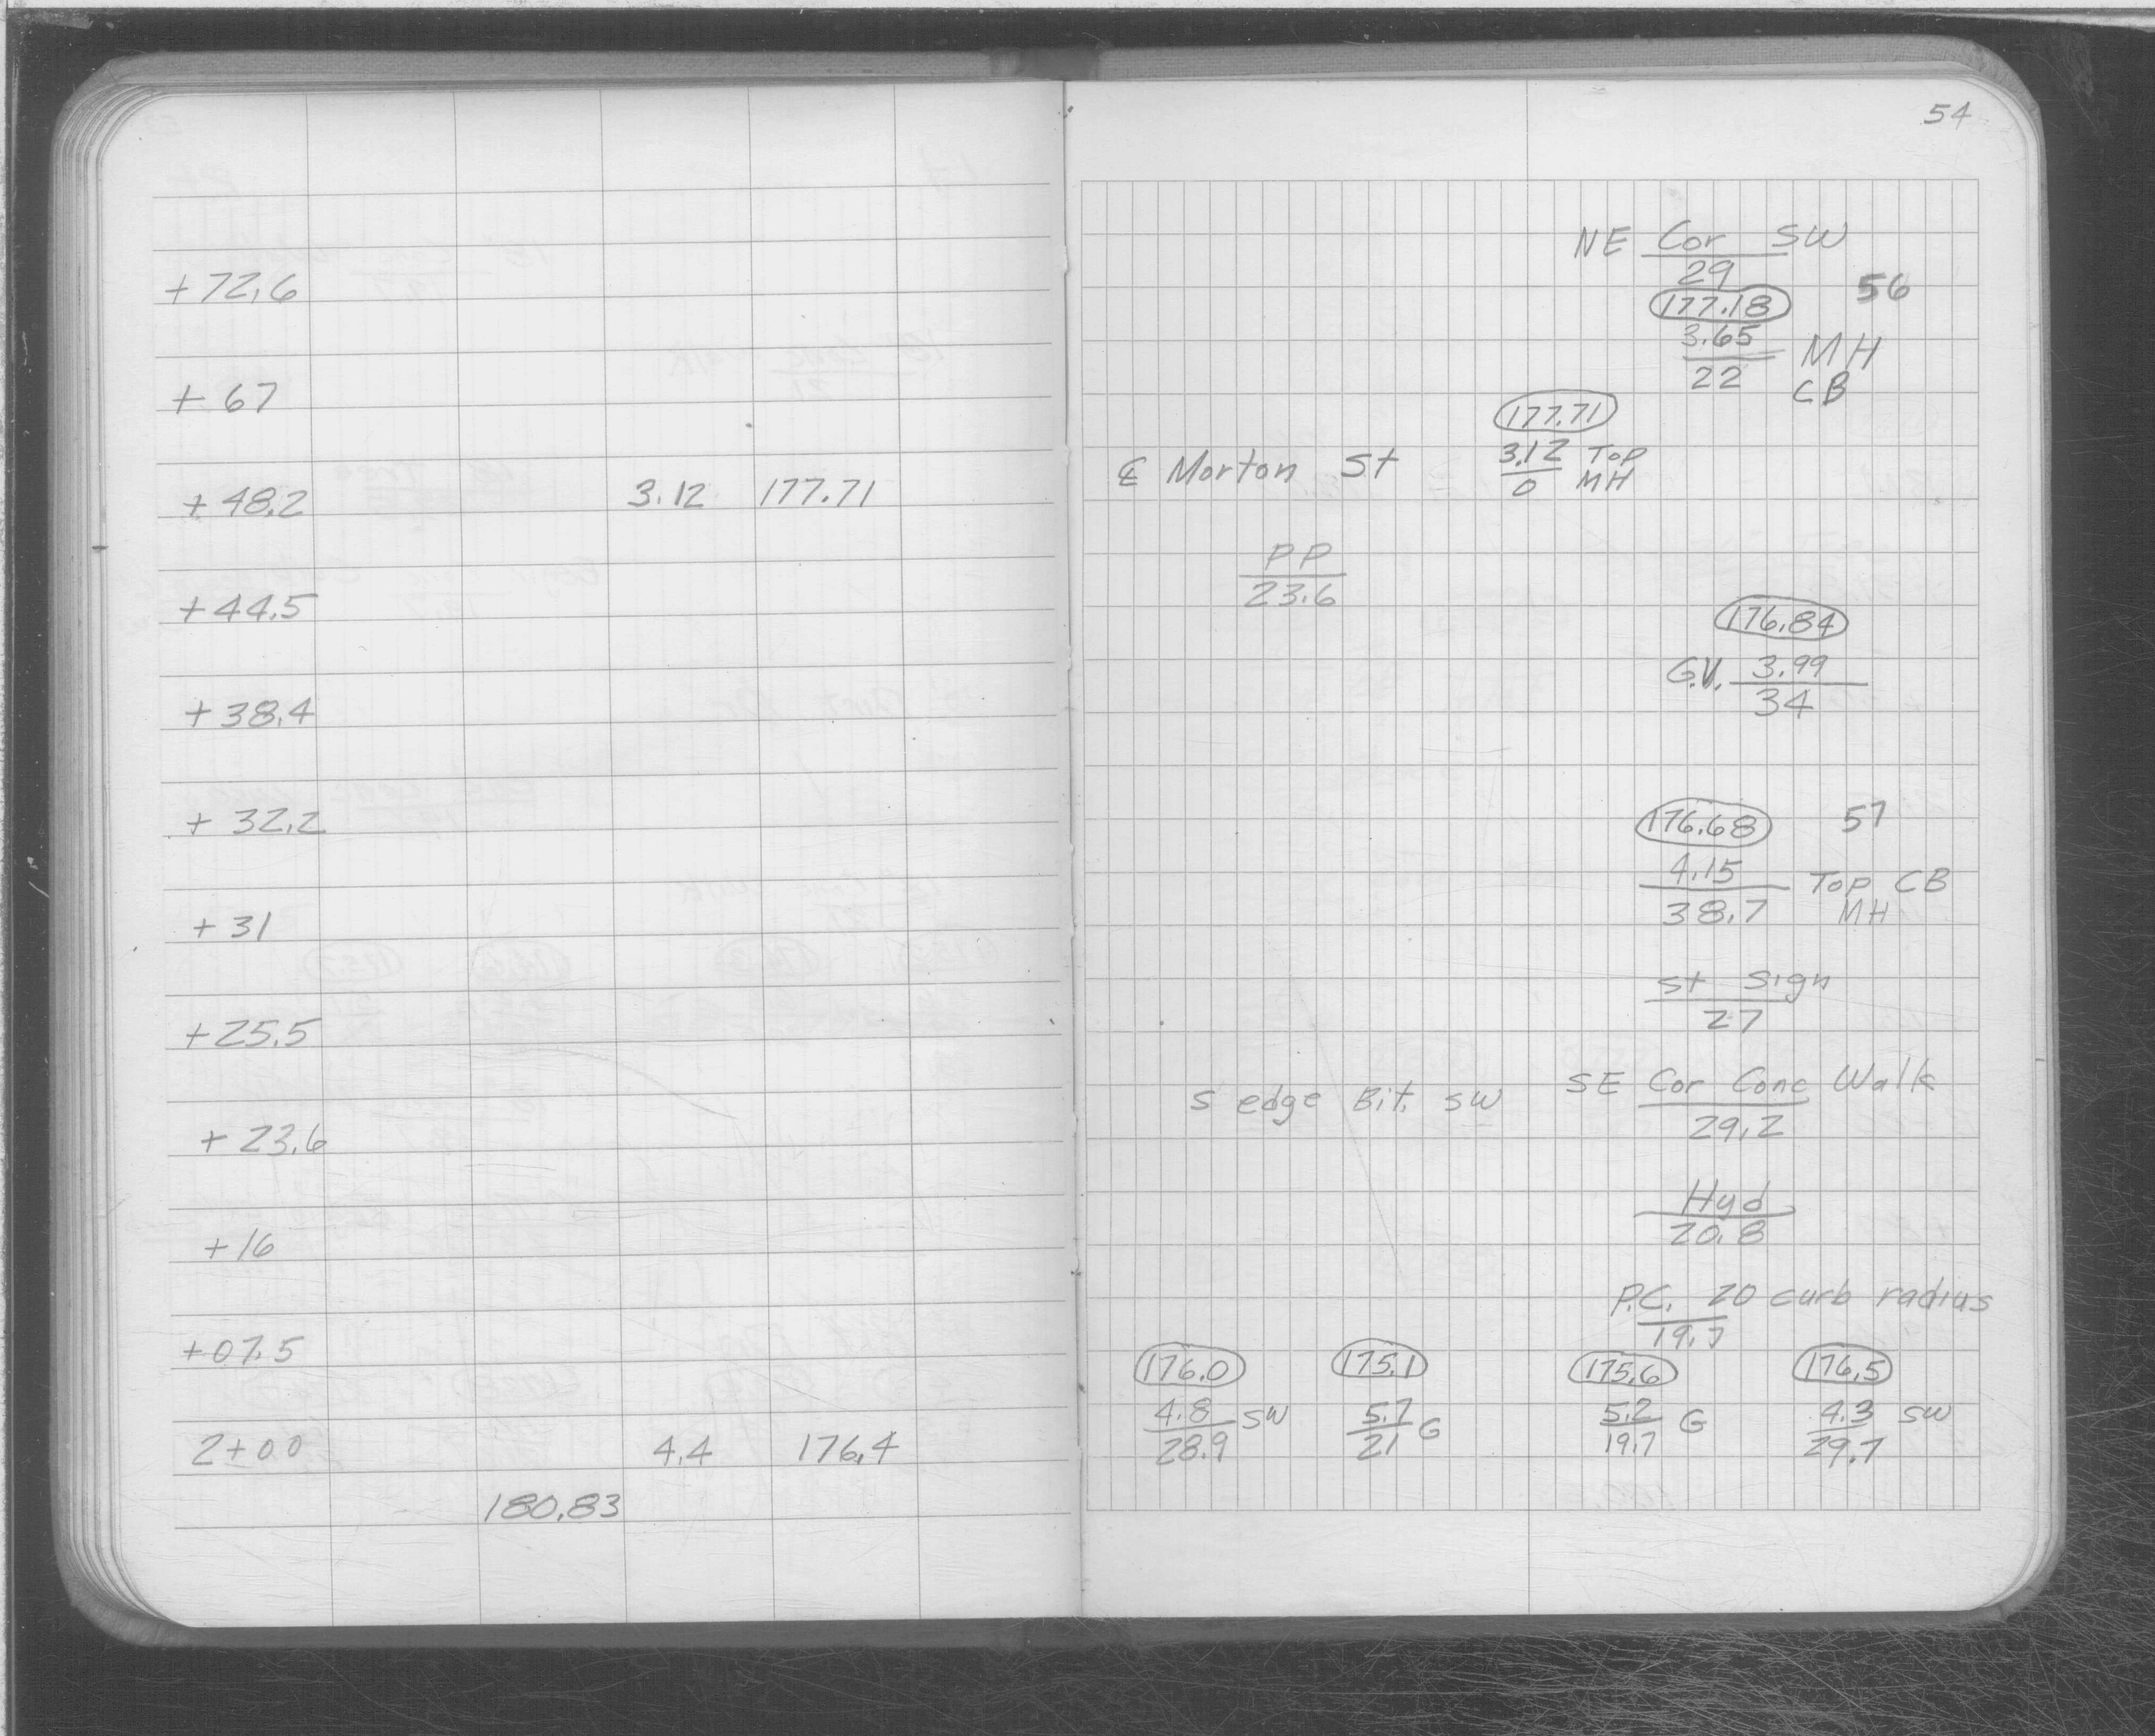 54
NE Cor SW
29
+72.6
177.18 56
3.65 MH
22 CB
+ 67
177.71
℄ Morton St 3.12 Top
0 MH
+ 48.2 3.12 177.71
PP
23.6
+44.5
176.84
G.V. 3.99
34
+38.4
176.68 57
+ 32.2
4.15 Top CB
38.7 MH
+ 31
St Sign
27
+25.5
S edge Bit. SW SE Cor Conc Walk
29.2
+ 23.6
Hyd
20.8
+16
P.C. 20 curb radius
19.7
+07.5
176.0 175.1 175.6 176.5
4.8 SW 5.7 G 5.2 G 4.3 SW
28.9 21 19.7 29.7
2+00 4.4 176.4
180.83